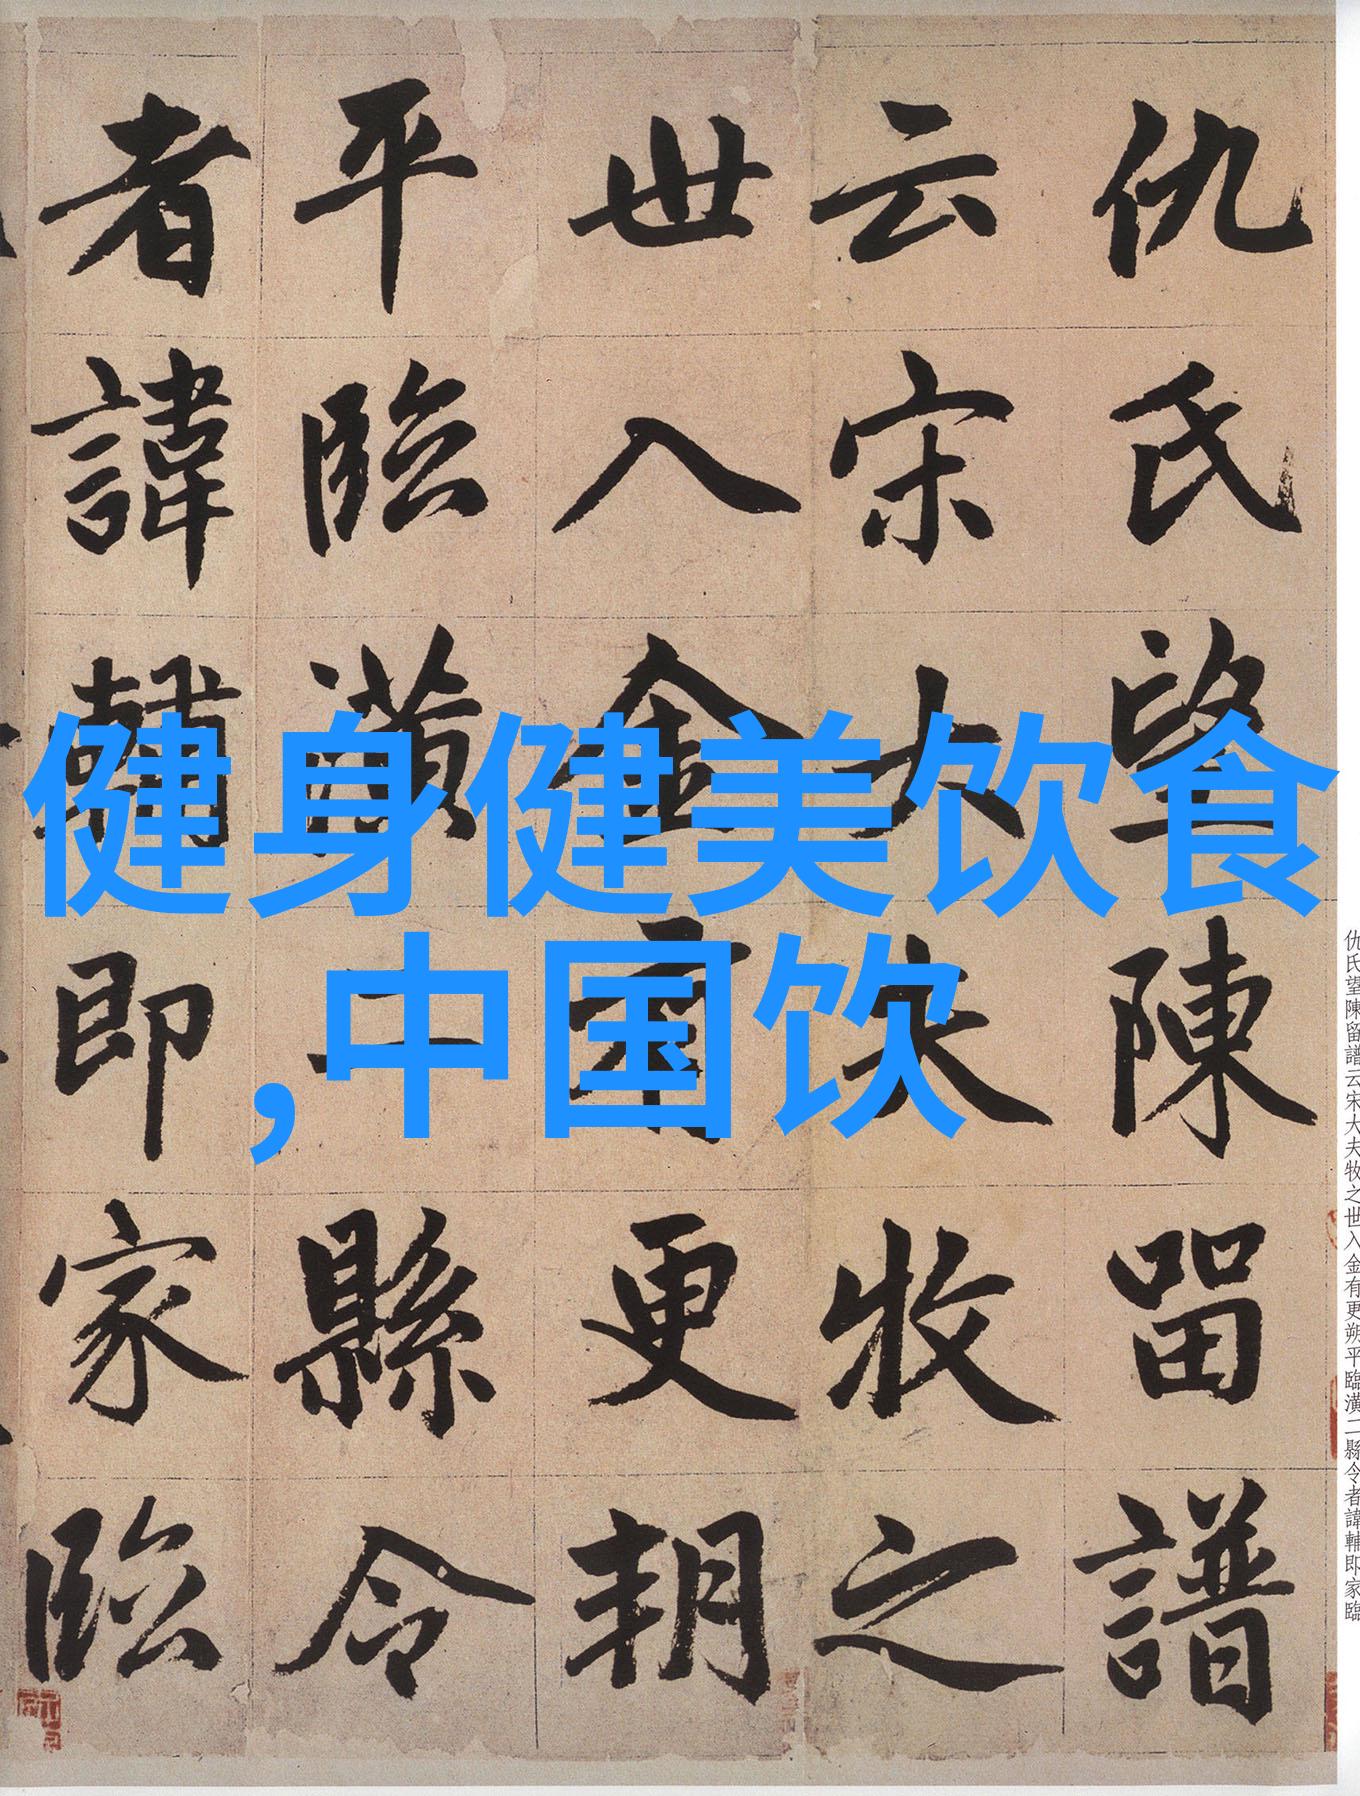 健身健美饮食
,中国饮
仇氏望陳留譜
云宋大夫牧之
世入金有更朔
平臨潢二縣令
者諱輔即家臨
仇氏望陳留譜云宋大夫牧之世入金有更朔平臨潢二縣令者諱輔即家臨